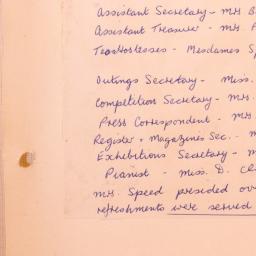 Assistant Secretary - Mrs B
Assistant Treasurer - Mrs.
Tea Hostesses - Mesdames Sp
Outings Secretary - Miss.
Competition Secretary - Mrs.
Press Correspondent - Mrs
Register + Magazines Sec. -
Exhibitions Secretary - M
Pianist - Miss. D. Cl
Mrs. Speed presided ov
refreshments were served